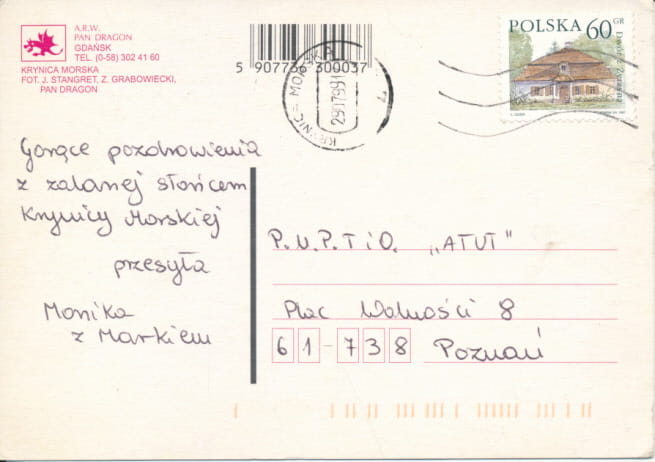 A.R.W.
PAN DRAGON
GDAŃSK
TEL. (0-58) 302 41 60
KRYNICA MORSKA
FOT. J. STANGRET, Z. GRABOWIECKI,
PAN DRAGON
5 907736 300037
POLSKA 60 GR
29 07 99
Gorące pozdrowienia
z zalanej słońcem
Krynicy Morskiej
przesyła
Monika
z Markiem
P.U.P.T i O. „ATUT"
Plac Wolności 8
61-738 Poznań